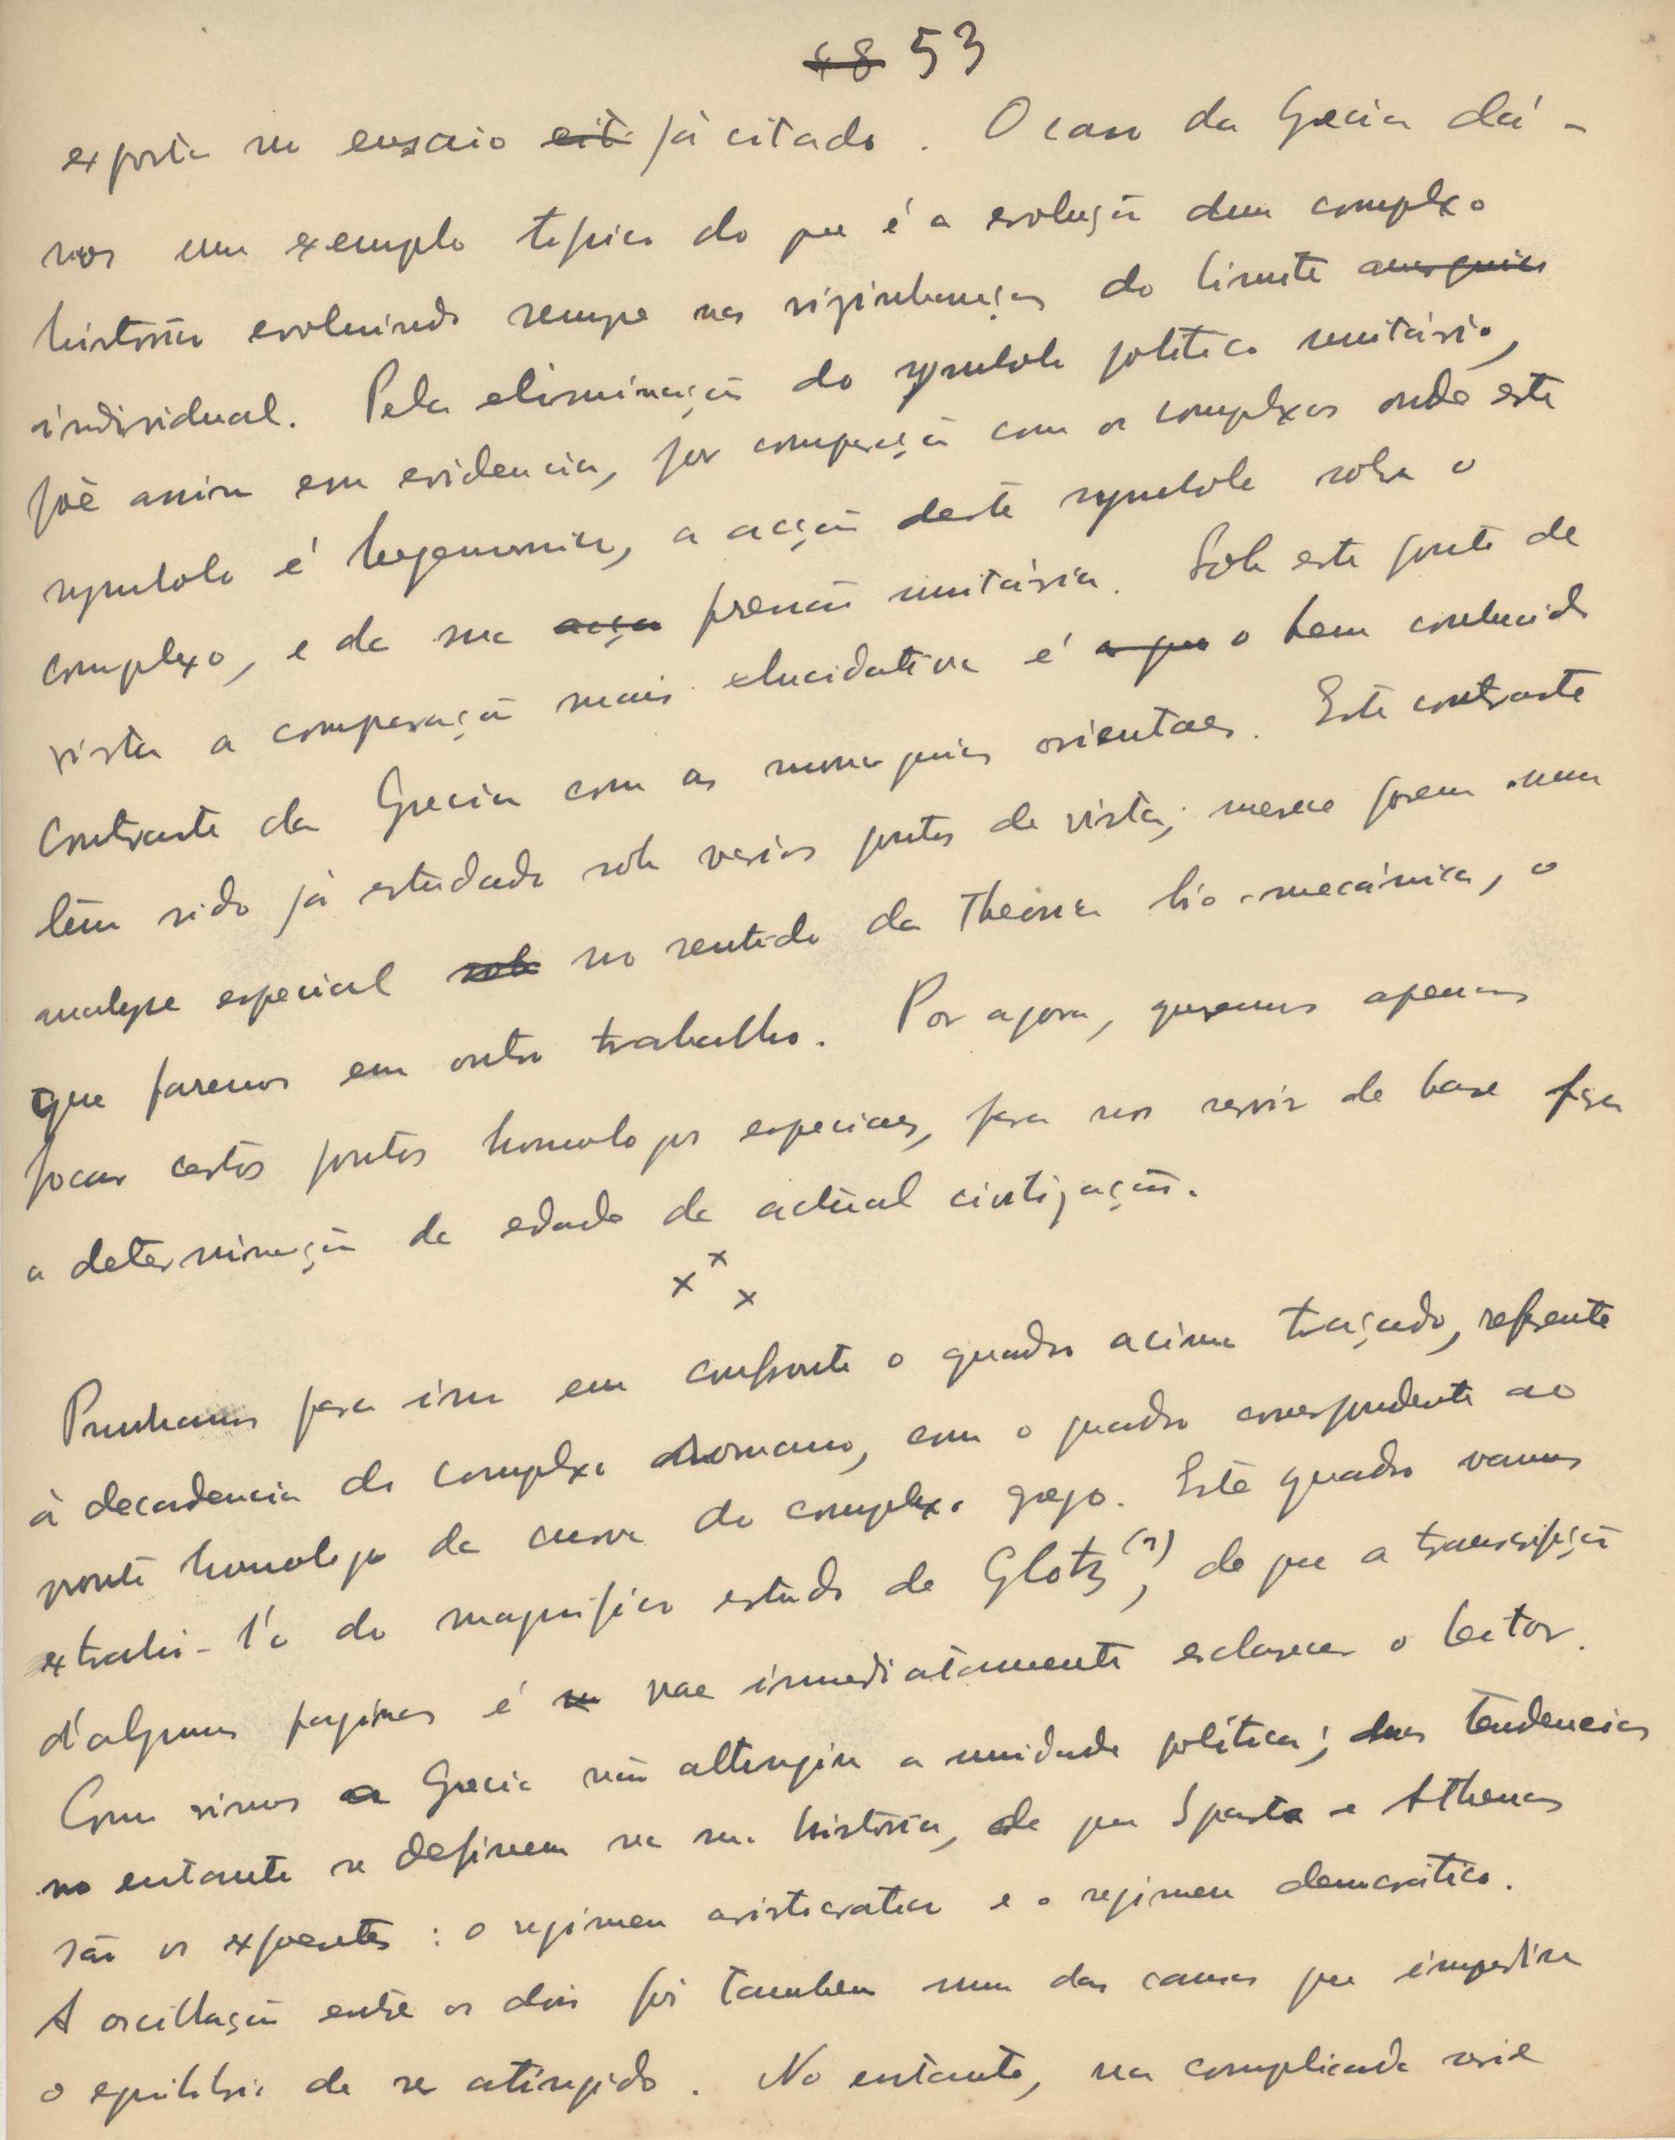 48 53
exposta no ensaio cit já citado. O caso da Grecia dá-
nos um exemplo tipico do que é a evolução dum complexo
historico evoluindo sempre nas vizinhanças do limite anarquico
individual. Pela eliminação do symbolo politico unitário,
põe assim em evidencia, por comparação com os complexos onde este
symbolo é hegemonico, a acção deste symbolo sobre o
complexo, e da sua acção pressão unitária. Sob este ponto de
vista a comparação mais elucidativa é a que o bem conhecido
contraste da Grecia com as monarquias orientaes. Este contraste
tem sido já estudado sob varios pontos de vista; merece porem uma
analyse especial sob no sentido da theoria bio-mecánica, o
que faremos em outro trabalho. Por agora, queremos apenas
focar certos pontos homologos especiaes, para nos servir de base para
a determinação da edade da actual civilização.
x x x
Ponhamos para isso em confronto o quadro acima traçado, referente
à decadencia do complexo romano, com o quadro correspondente ao
ponto homologo da curva do complexo grego. Este quadro vamos
extrahi-l'o do magnifico estudo de Glotz (1), de que a transcripção
d'algumas paginas é vae immediatamente esclarecer o leitor.
Como vimos a Grecia não attingiu a unidade política; duas tendencias
no entanto se definem na sua história, de que Sparta e Athenas
são os expoentes: o regimen aristocratico e o regimen democrático.
A oscillação entre os dois foi tambem uma das causas que impediu
o equilibrio de ser atingido. No entanto, na complicada serie